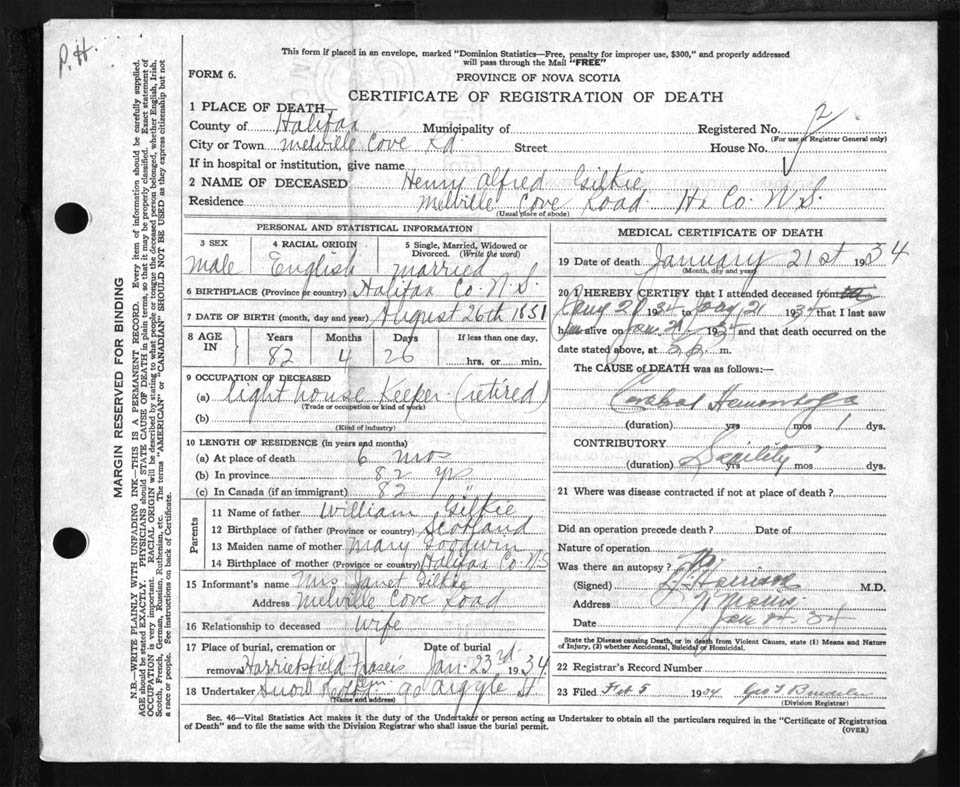 P.H.
This form if placed in an envelope, marked "Dominion Statistics—Free, penalty for improper use, $300," and properly addressed
will pass through the Mail "FREE"
FORM 6.
PROVINCE OF NOVA SCOTIA
CERTIFICATE OF REGISTRATION OF DEATH
1 PLACE OF DEATH—
County of Halifax Municipality of Registered No. 2
(For use of Registrar General only)
City or Town Melville Cove Rd Street House No.
If in hospital or institution, give name
2 NAME OF DECEASED Henry Alfred Gilkie
Residence Melville Cove Road Hx Co. N.S.
(Usual place of abode)
PERSONAL AND STATISTICAL INFORMATION
3 SEX 4 RACIAL ORIGIN 5 Single, Married, Widowed or
Divorced. (Write the word)
Male English Married
6 BIRTHPLACE (Province or country) Halifax Co. N.S.
7 DATE OF BIRTH (month, day and year) August 26th 1851
8 AGE IN Years Months Days If less than one day,
82 4 26 hrs. or min.
9 OCCUPATION OF DECEASED
(a) Light house Keeper (retired)
(Trade or occupation or kind of work)
(b)
(Kind of industry)
10 LENGTH OF RESIDENCE (in years and months)
(a) At place of death 6 mos
(b) In province 82 yrs
(c) In Canada (if an immigrant) 82 "
Parents
11 Name of father William Gilkie
12 Birthplace of father (Province or country) Scotland
13 Maiden name of mother Mary Goodwin
14 Birthplace of mother (Province or country) Halifax Co. N.S
15 Informant's name Mrs Janet Gilkie
Address Melville Cove Road
16 Relationship to deceased Wife
17 Place of burial, cremation or Date of burial
removal Harrietsfield Jan. 23rd 1934
18 Undertaker Snow Argyle St
(Name and address)
MEDICAL CERTIFICATE OF DEATH
19 Date of death January 21st 1934
(Month, day and year)
20 I HEREBY CERTIFY that I attended deceased from
21 1934 to 21 1934 that I last saw
him alive on Jan. 21 1934 and that death occurred on
date stated above, at m.
The CAUSE of DEATH was as follows:—
Cerebral Hemorrhage
(duration) yrs mos 1 dys.
CONTRIBUTORY
Senility
(duration) yrs mos dys.
21 Where was disease contracted if not at place of death?
Did an operation precede death? Date of
Nature of operation
Was there an autopsy? No
(Signed) Harrison M.D.
Address
Date Jan 34
State the Disease causing Death, or in death from Violent Causes, state (1) Means and Nature
of Injury, (2) whether Accidental, Suicidal or Homicidal.
22 Registrar's Record Number
23 Filed Feb 5 1934 Geo
(Division Registrar)
Sec. 46—Vital Statistics Act makes it the duty of the Undertaker or person acting as Undertaker to obtain all the particulars required in the "Certificate of Registration
of Death" and to file the same with the Division Registrar who shall issue the burial permit.
(OVER)
MARGIN RESERVED FOR BINDING
N.B.—WRITE PLAINLY WITH UNFADING INK—THIS IS A PERMANENT RECORD. Every item of information should be carefully supplied.
AGE should be stated EXACTLY. PHYSICIANS should state CAUSE OF DEATH in plain terms, so that it may be properly classified. Exact statement of
OCCUPATION is very important. RACIAL ORIGIN will be described by stating to what people or tongue the deceased person belonged, whether English, Irish,
Scotch, French, German, Russian, Ruthenian, etc. The terms "AMERICAN" or "CANADIAN" SHOULD NOT BE USED as they express citizenship but not
a race or people. See instructions on back of Certificate.